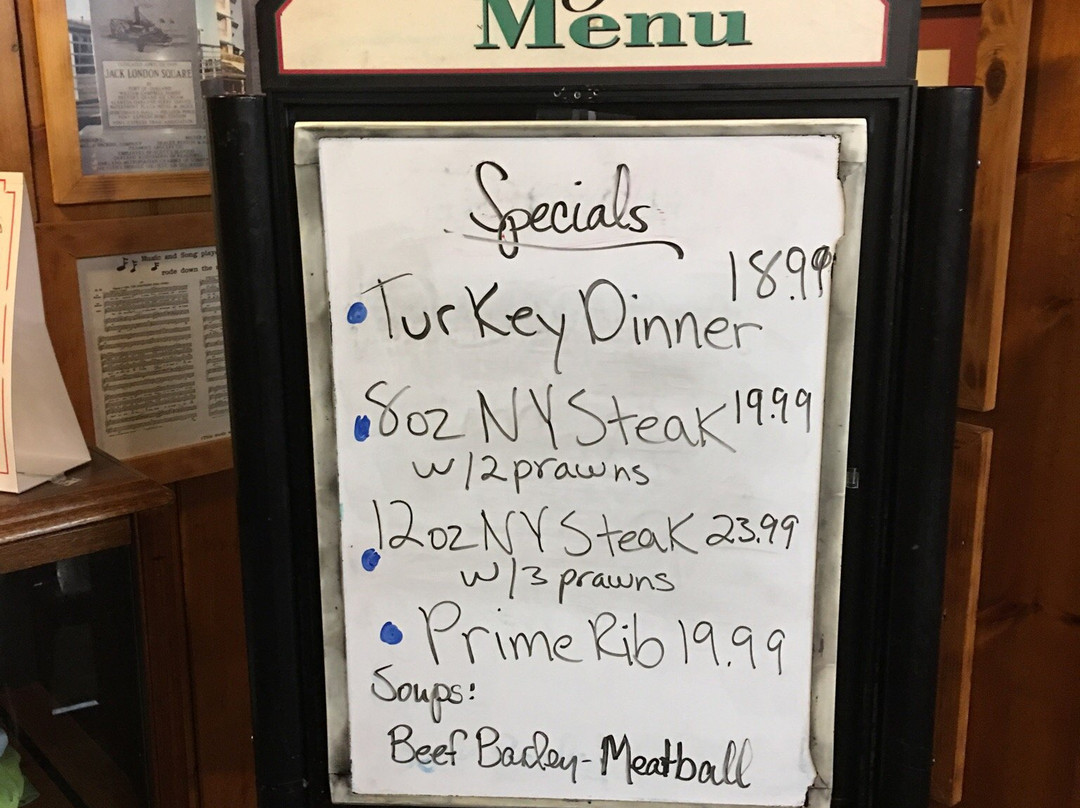 Menu
JACK LONDON SQUARE
Music and Song
rode down the
Specials
Turkey Dinner 18.99
8oz NY Steak 19.99
w/2 prawns
12oz NY Steak 23.99
w/3 prawns
Prime Rib 19.99
Soups:
Beef Barley - Meatball